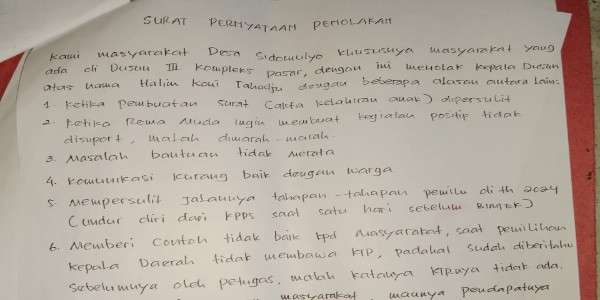 SURAT PERNYATAAN PENOLAKAN
Kami masyarakat Desa Sidomulyo khususnya masyarakat yang
ada di Dusun III Kompleks pasar, dengan ini menolak kepala Dusun
atas nama Halim Koni Tahadju dengan beberapa alasan antara lain:
1. Ketika pembuatan surat (akta kelahiran anak) dipersulit
2. Ketika Rema Muda ingin membuat kegiatan positip tidak
disuport, malah dimarah-marah.
3. Masalah bantuan tidak merata
4. Komunikasi kurang baik dengan warga
5. Mempersulit jalannya tahapan-tahapan pemilu di th 2024
(undur diri dari KPPS saat satu hari sebelum BIMTEK)
6. Memberi contoh tidak baik kpd masyarakat, saat pemilihan
kepala Daerah tidak membawa KTP, padahal sudah diberitahu
sebelumnya oleh petugas, malah katanya KTPnya tidak ada.
masyarakat, maunya pendapatnya